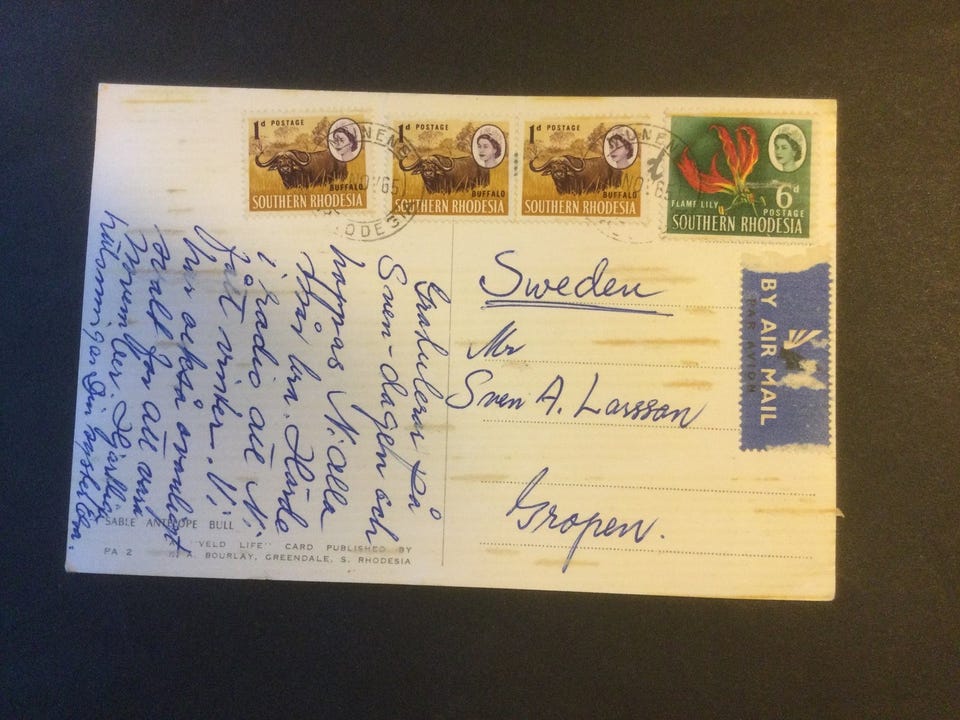 1d POSTAGE
BUFFALO
SOUTHERN RHODESIA
1d POSTAGE
BUFFALO
SOUTHERN RHODESIA
1d POSTAGE
BUFFALO
SOUTHERN RHODESIA
FLAME LILY
6d
POSTAGE
SOUTHERN RHODESIA
NOV 65
BY AIR MAIL
PAR AVION
Sweden
Mr
Sven A. Larsson
Gropen.
Gratulerar på
Sven-dagen och
hoppas Ni alla
mår bra. Hörde
i radio att Ni
fått vinter. Vi
har också ovanligt
svalt för att vara
november. Hjärtliga
hälsningar Din
SABLE ANTELOPE BULL
"VELD LIFE" CARD PUBLISHED BY
PA 2 A. BOURLAY, GREENDALE, S. RHODESIA